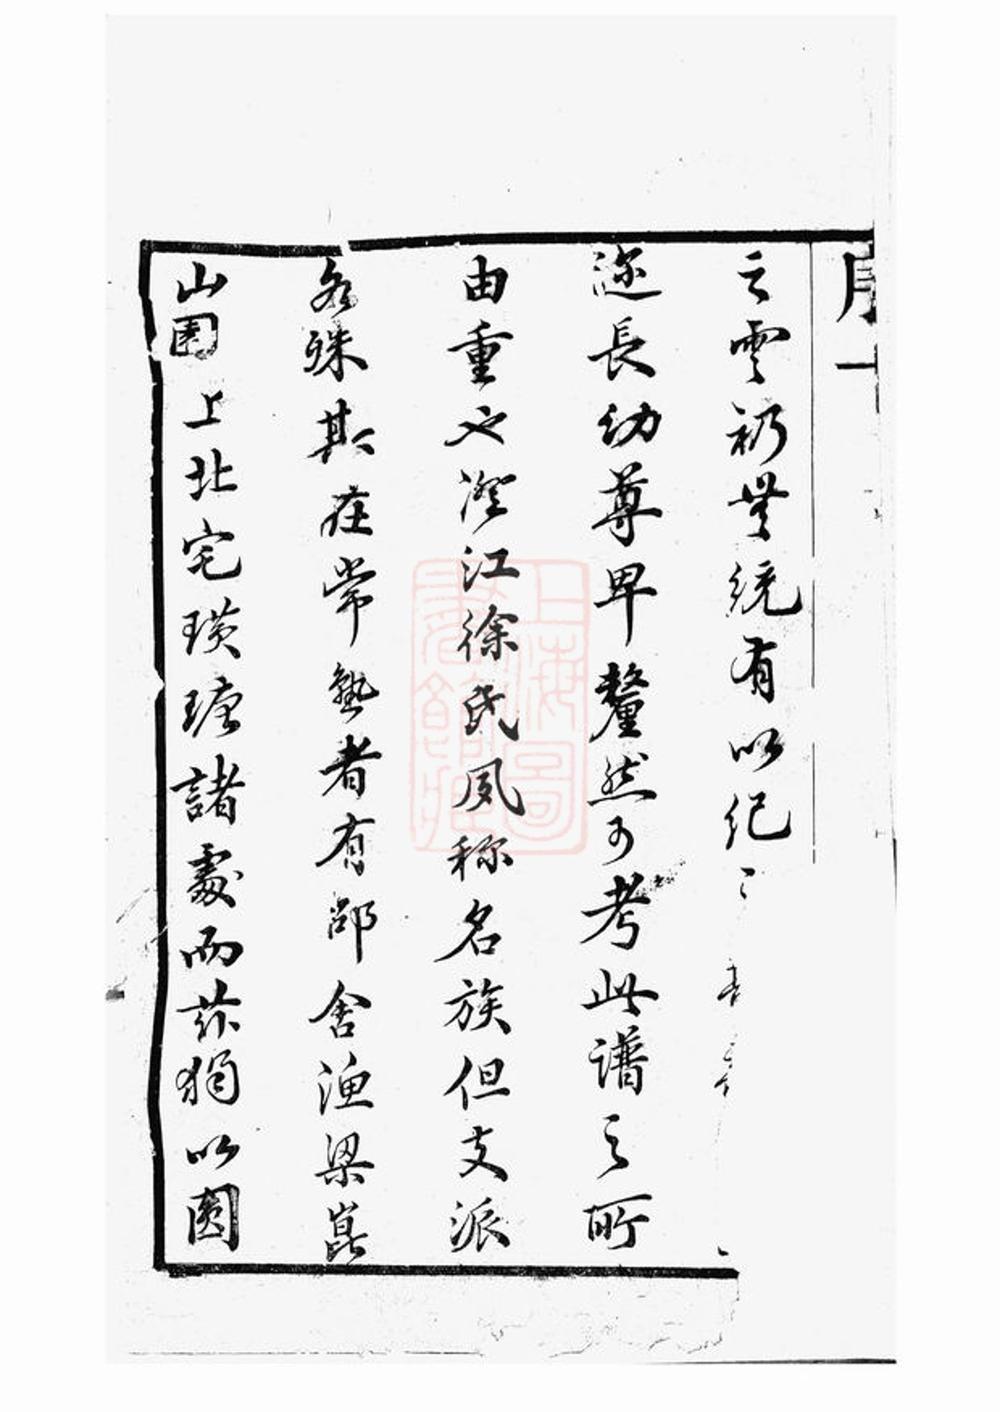 序一
之雲礽無統有以紀
迩長幼尊卑釐然可考此譜之所
由重也澄江徐氏夙称名族但支派
各殊其在常熟者有邵舍漁梁崑
山圓上北宅璜塘諸處而茲獨以園
上海圖書館藏